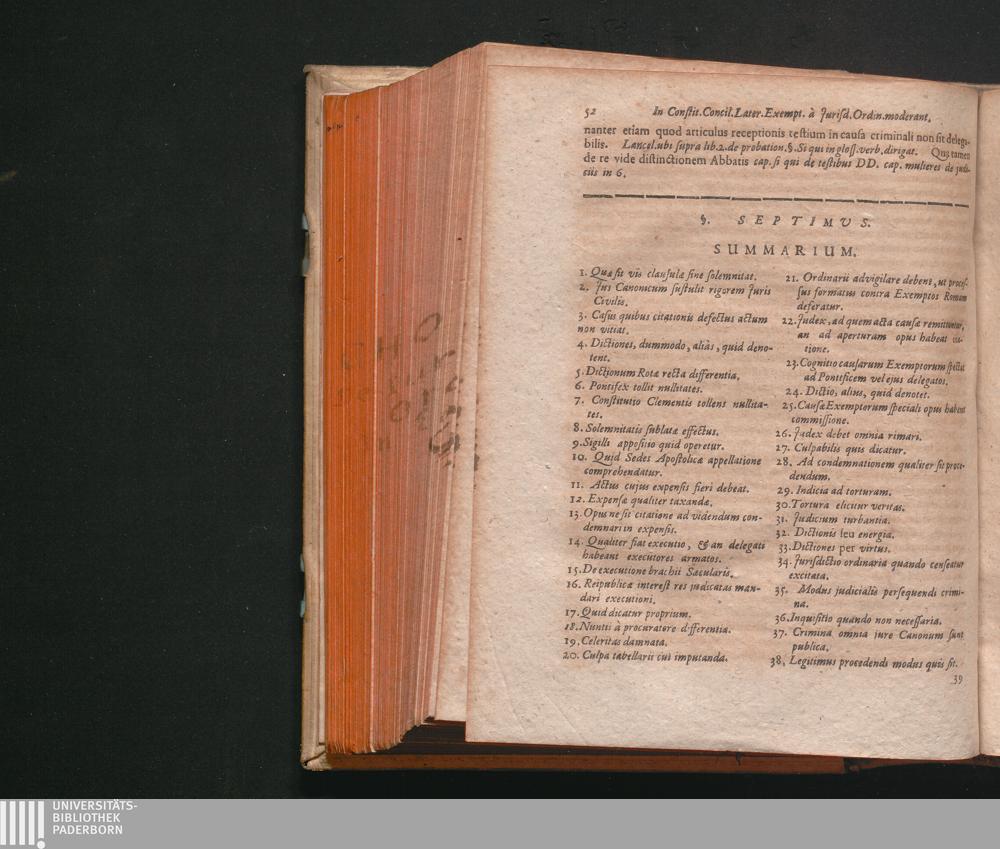 52 In Constit. Concil. Later. Exempt. à Jurisd. Ordin. moderant.
nanter etiam quod articulus receptionis testium in causa criminali non sit delega-
bilis. Lancel. ubi supra lib. 2. de probation. §. Si qui in gloss. verb. dirigat. Qua tamen
de re vide distinctionem Abbatis cap. si qui de testibus DD. cap. mulieres de judi-
ciis in 6.
§. SEPTIMUS.
SUMMARIUM.
1. Quæ sit vis clausulæ sine solemnitat.
2. Jus Canonicum sustulit rigorem Juris
Civilis.
3. Casus quibus citationis defectus actum
non vitiat.
4. Dictiones, dummodo, aliàs, quid deno-
tent.
5. Dictionum Rotæ recta differentia.
6. Pontifex tollit nullitates.
7. Constitutio Clementis tollens nullita-
tes.
8. Solemnitatis sublatæ effectus.
9. Sigilli appositio quid operetur.
10. Quid Sedes Apostolicæ appellatione
comprehendatur.
11. Actus cujus expensis fieri debeat.
12. Expensæ qualiter taxandæ.
13. Opus ne sit citatione ad videndum con-
demnari in expensis.
14. Qualiter fiat executio, & an delegati
habeant executores armatos.
15. De executione brachii Sæcularis.
16. Reipublicæ interest res judicatas man-
dari executioni.
17. Quid dicatur proprium.
18. Nuntii à procuratore differentia.
19. Celeritas damnata.
20. Culpa tabellarii cui imputanda.
21. Ordinarii advigilare debent, ut proces-
sus formatus contra Exemptos Romam
deferatur.
22. Judex, ad quem acta causæ remittuntur,
an ad aperturam opus habeat cita-
tione.
23. Cognitio causarum Exemptorum spectat
ad Pontificem vel ejus delegatos.
24. Dictio, alius, quid denotet.
25. Causæ Exemptorum speciali opus habent
commissione.
26. Judex debet omnia rimari.
27. Culpabilis quis dicatur.
28. Ad condemnationem qualiter sit proce-
dendum.
29. Indicia ad torturam.
30. Tortura elicitur veritas.
31. Judicium turbantia.
32. Dictionis seu energia.
33. Dictiones per virtus.
34. Jurisdictio ordinaria quando censeatur
excitata.
35. Modus judicialis persequendi crimi-
na.
36. Inquisitio quando non necessaria.
37. Crimina omnia jure Canonum sunt
publica.
38. Legitimus procedendi modus quis sit.
39
UNIVERSITÄTS-
BIBLIOTHEK
PADERBORN